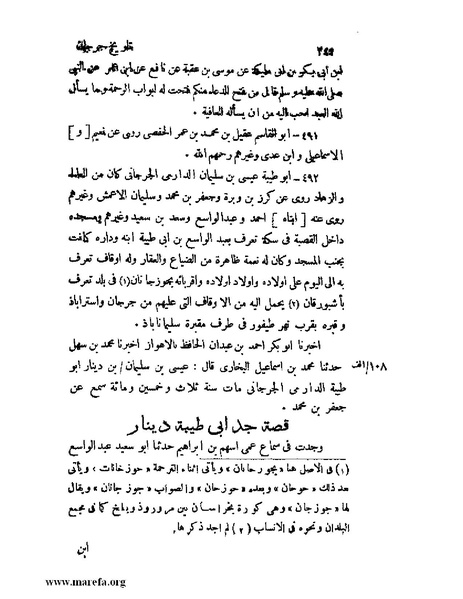 ٢٤٤ تاريخ جرجان
ابن أبي بكر من ابى مليكة عن موسى بن عقبة عن نافع عن ابن عمر عن النبي
صلى الله عليه وسلم قال من فتح له الدعاء منكم فتحت له ابواب الرحمة وما يسأل
الله العبد احب اليه من ان يسأله العافية .
٤٩١ – ابو القاسم عقيل بن محمد بن عمر الحفصى روى عن نعيم [ و ]
الاسماعيلى و ابن عدى وغيرهم رحمهم الله .
٤٩٢ – ابو طيبة عيسى بن سليمان الدارمى الجرجانى كان من العلماء
والزهاد روى عن كرز بن وبرة وجعفر بن محمد وسليمان الاعمش وغيرهم
روى عنه [ ابناه ] احمد و عبد الواسع وسعد بن سعيد وغيرهم ومسجده
داخل القصبة فى سكة تعرف بعبد الواسع بن ابى طيبة ابنه وداره كانت
بجنب المسجد وكان له نعمة ظاهرة من الضياع والعقار وله اوقاف تعرف
به الى اليوم على اولاده واولاد اولاده واقربائه بجوزجانان (١) فى بلد تعرف
بأشبورقان (٢) يحمل اليه من الاوقاف التى عليهم من جرجان واستراباذ
و قبره بقرب نهر طيفور فى طرف مقبرة سليماناباذ .
اخبرنا ابو بكر احمد بن عبدان الحافظ بالاهواز اخبرنا محمد بن سهل
١٠٨/الف حدثنا محمد بن اسماعيل البخارى قال : عيسى بن سليمان / بن دينار ابو
طيبة الدارمى الجرجانى مات سنة ثلاث وخمسين ومائة سمع عن
جعفر بن محمد .
قصة جد ابى طيبة دينار
وجدت فى سماع عمى اسهم بن ابراهيم حدثنا ابو سعيد عبد الواسع
(١) فى الاصل هنا « بجورحانان » ويأتى اثناء الترجمة « جوزخانات » ويأتى
بعد ذلك « حوحان » وبعده « حوزحان » والصواب « جوزجانان » ويقال
لها « جوزجان » وهى كورة بخراسان بين مروروذ وبلخ كما فى معجم
البلدان ونحوه فى الانساب (٢) لم اجد ذكرها .
ابن
www.marefa.org